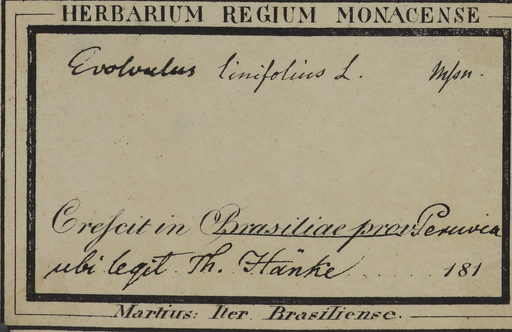 HERBARIUM REGIUM MONACENSE
Evolvulus linifolius L. Mssn.
Crescit in Brasiliae prov Peruvia
ubi legit Th. Hänke ...... 181
Martius: Iter Brasiliense.